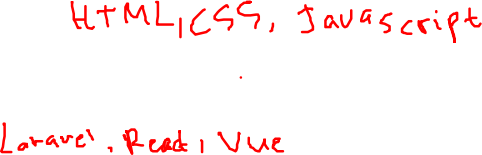 HTML, CSS, Javascript
Laravel, React, Vue